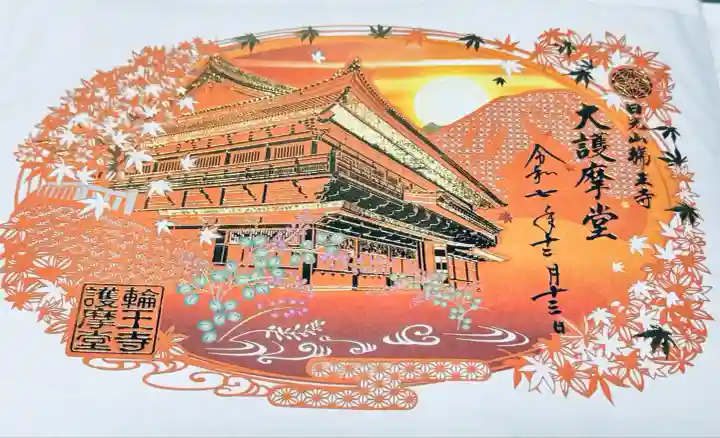 日光山輪王寺
大護摩堂
令和七年十二月十三日
輪王寺
護摩堂